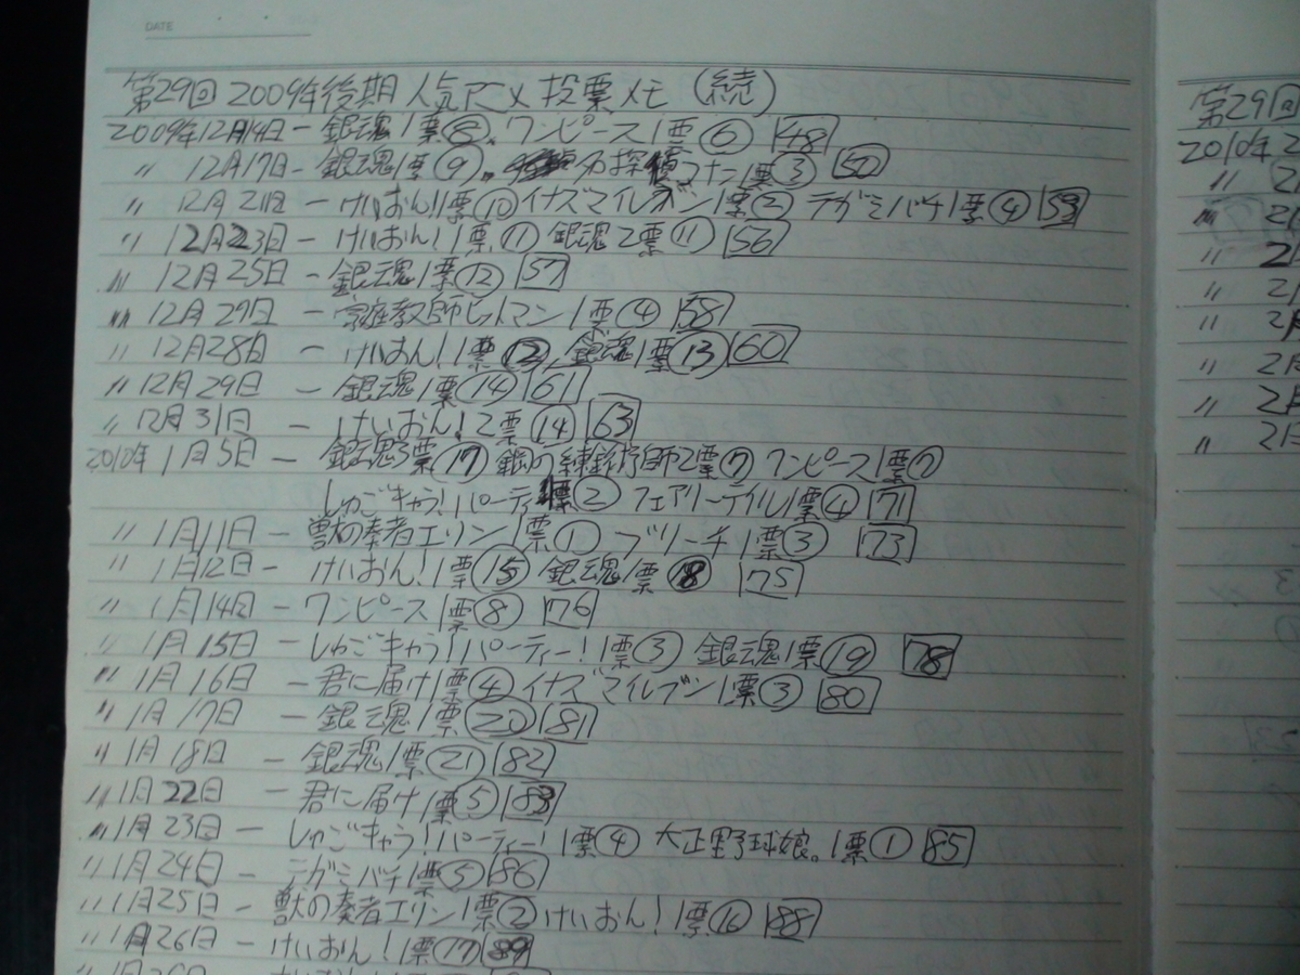 DATE
第29回2009年後期人気アニメ投票メモ(続)
2009年12月14日-銀魂1票⑧、ワンピース1票⑥ 48
〃 12月17日-銀魂1票⑨、名探偵コナン1票③ 50
〃 12月21日-けいおん!1票⑩イナズマイレブン1票② テガミバチ1票④ 53
〃 12月23日-けいおん!1票⑪ 銀魂2票⑪ 56
〃 12月25日-銀魂1票⑫ 57
〃 12月27日-家庭教師ヒットマン1票④ 58
〃 12月28日-けいおん!1票⑫、銀魂1票⑬ 60
〃 12月29日-銀魂1票⑭ 61
〃 12月31日-けいおん!2票⑭ 63
2010年1月5日-銀魂3票⑰ 鋼の錬金術師2票⑦ ワンピース1票⑦
しゅごキャラ!パーティ1票② フェアリーテイル1票④ 71
〃 1月11日-獣の奏者エリン1票① ブリーチ1票③ 73
〃 1月12日-けいおん!1票⑮ 銀魂1票⑱ 75
〃 1月14日-ワンピース1票⑧ 76
〃 1月15日-しゅごキャラ!パーティー!1票③ 銀魂1票⑲ 78
〃 1月16日-君に届け1票④イナズマイレブン1票③ 80
〃 1月17日-銀魂1票⑳ 81
〃 1月18日-銀魂1票㉑ 82
〃 1月22日-君に届け1票⑤ 83
〃 1月23日-しゅごキャラ!パーティー!1票④ 大正野球娘。1票① 85
〃 1月24日-テガミバチ1票⑤ 86
〃 1月25日-獣の奏者エリン1票②けいおん!1票⑯ 88
〃 1月26日-けいおん!1票⑰ 89
第29回
2010年2